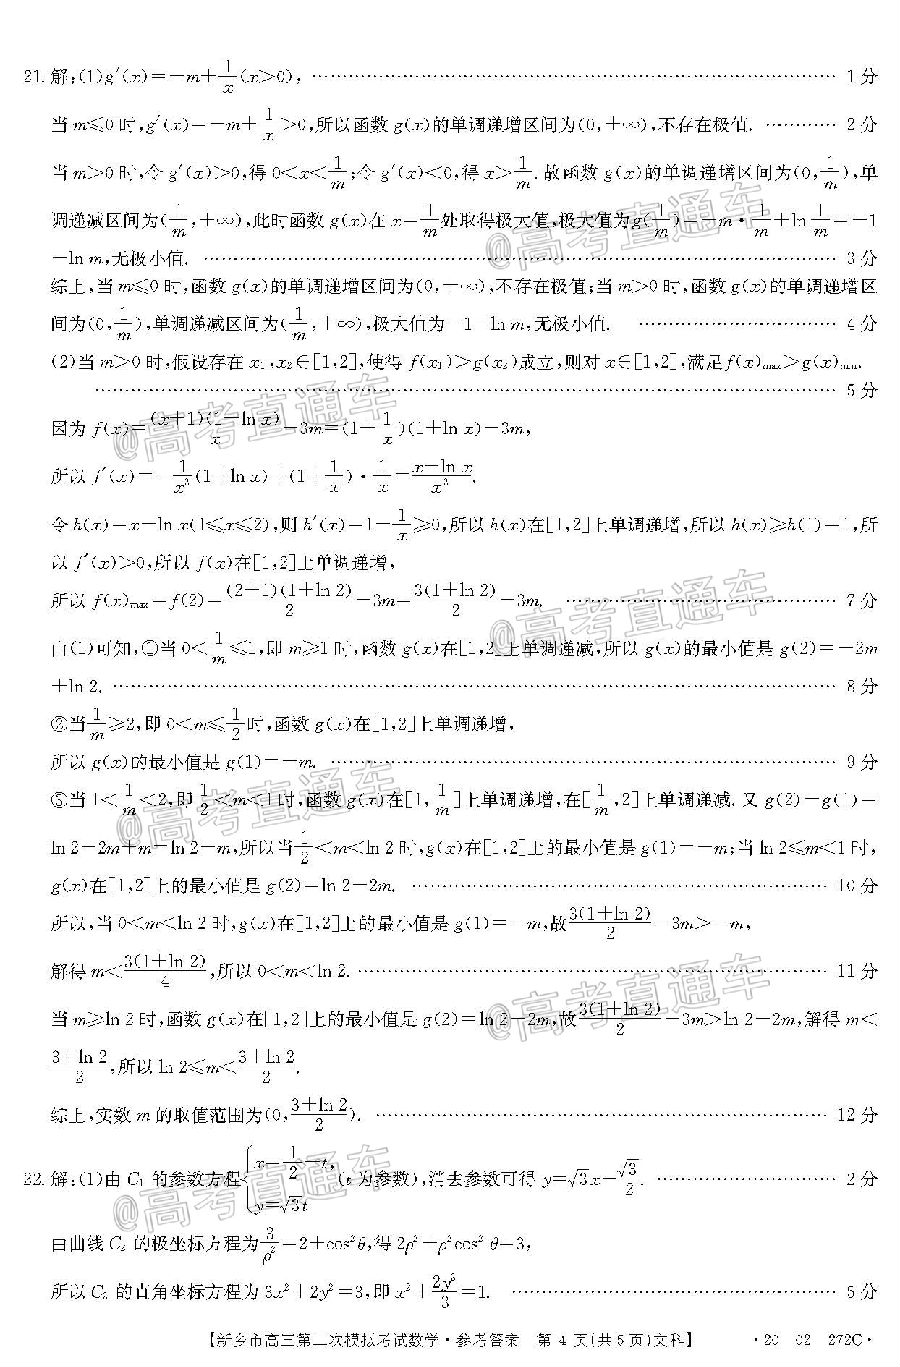 21. 解:(1)g′(x)=-m+1/x(x>0), …… 1分
当m≤0时,g′(x)=-m+1/x>0,所以函数g(x)的单调递增区间为(0,+∞),不存在极值. …… 2分
当m>0时,令g′(x)>0,得0<x<1/m;令g′(x)<0,得x>1/m.故函数g(x)的单调递增区间为(0,1/m),单
调递减区间为(1/m,+∞),此时函数g(x)在x=1/m处取得极大值,极大值为g(1/m)=-m·1/m+ln 1/m=-1
-ln m,无极小值. …… 3分
综上,当m≤0时,函数g(x)的单调递增区间为(0,+∞),不存在极值;当m>0时,函数g(x)的单调递增区
间为(0,1/m),单调递减区间为(1/m,+∞),极大值为-1-ln m,无极小值. …… 4分
(2)当m>0时,假设存在x₁,x₂∈[1,2],使得f(x₁)>g(x₂)成立,则对x∈[1,2],满足f(x)max>g(x)min.
…… 5分
因为f(x)=(x+1)(1+ln x)/x-3m=(1+1/x)(1+ln x)-3m,
所以f′(x)=-1/x²(1+ln x)+(1+1/x)·1/x=(x-ln x)/x².
令h(x)=x-ln x(1≤x≤2),则h′(x)=1-1/x≥0,所以h(x)在[1,2]上单调递增,所以h(x)≥h(1)=1,所
以f′(x)>0,所以f(x)在[1,2]上单调递增,
所以f(x)max=f(2)=(2+1)(1+ln 2)/2-3m=3(1+ln 2)/2-3m. …… 7分
由(1)可知,①当0<1/m≤1,即m≥1时,函数g(x)在[1,2]上单调递减,所以g(x)的最小值是g(2)=-2m
+ln 2. …… 8分
②当1/m≥2,即0<m≤1/2时,函数g(x)在[1,2]上单调递增,
所以g(x)的最小值是g(1)=-m. …… 9分
③当1<1/m<2,即1/2<m<1时,函数g(x)在[1,1/m]上单调递增,在[1/m,2]上单调递减.又g(2)-g(1)=
ln 2-2m+m=ln 2-m,所以当1/2<m<ln 2时,g(x)在[1,2]上的最小值是g(1)=-m;当ln 2≤m<1时,
g(x)在[1,2]上的最小值是g(2)=ln 2-2m. …… 10分
所以,当0<m<ln 2时,g(x)在[1,2]上的最小值是g(1)=-m,故3(1+ln 2)/2-3m>-m,
解得m<3(1+ln 2)/4,所以0<m<ln 2. …… 11分
当m≥ln 2时,函数g(x)在[1,2]上的最小值是g(2)=ln 2-2m,故3(1+ln 2)/2-3m>ln 2-2m,解得m<
(3+ln 2)/2,所以ln 2≤m<(3+ln 2)/2.
综上,实数m的取值范围为(0,(3+ln 2)/2). …… 12分
22. 解:(1)由C₁的参数方程{x=1/2+t, y=√3t (t为参数),消去参数可得y=√3x-√3/2. …… 2分
由曲线C₂的极坐标方程为3/ρ²=2+cos²θ,得2ρ²+ρ²cos²θ=3,
所以C₂的直角坐标方程为3x²+2y²=3,即x²+2y²/3=1. …… 5分
【新乡市高三第二次模拟考试数学·参考答案 第4页(共5页)文科】 ·20-02-272C·
@高考直通车
@高考直通车
@高考直通车
@高考直通车
@高考直通车
@高考直通车